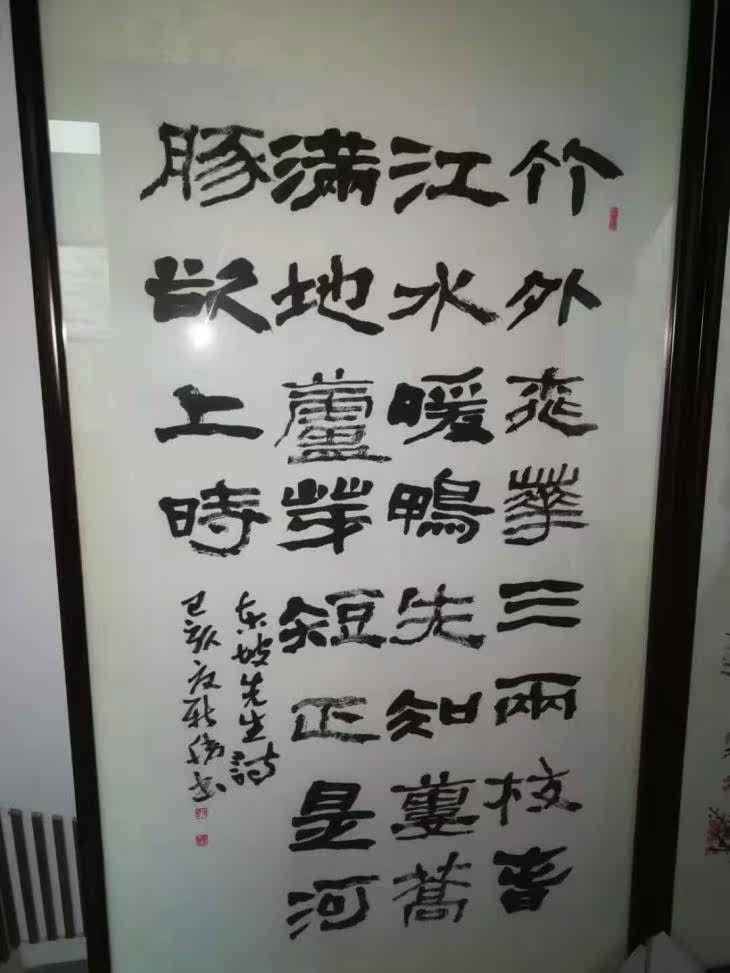 竹外桃華三兩枝春
江水暖鴨先知蔞蒿
滿地蘆芽短正是河
豚欲上時
東坡先生詩